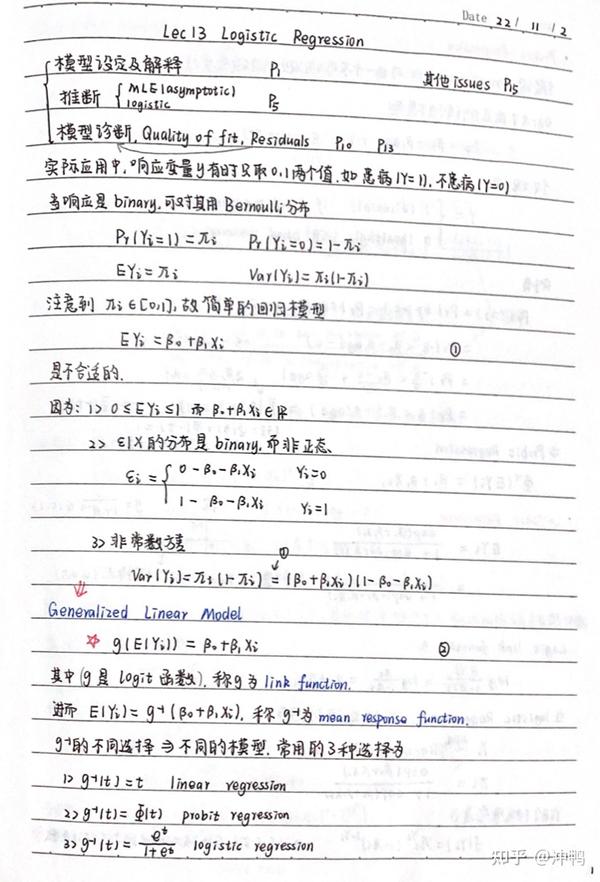 Date 22/ 11 /2
Lec 13 Logistic Regression
模型设定及解释 P1 其他issues P15
推断 { MLE(asymptotic) logistic P5
模型诊断, Quality of fit, Residuals P10 P13
实际应用中,响应变量y有时只取0,1两个值,如患病(Y=1),不患病(Y=0)
当响应是 binary,可对其用 Bernoulli 分布
Pr(Yi=1)=πi Pr(Yi=0)=1-πi
EYi=πi Var(Yi)=πi(1-πi)
注意到 πi∈[0,1],故简单的回归模型
EYi=β0+β1Xi ①
是不合适的.
因为: 1> 0≤EYi≤1 而 β0+β1Xi∈R
2> ε|X的分布是 binary,而非正态、
εi= { 0-β0-β1Xi Yi=0
1-β0-β1Xi Yi=1
3> 非常数方差 ①
Var(Yi)=πi(1-πi)=(β0+β1Xi)(1-β0-β1Xi)
⇓
Generalized Linear Model
☆ g(E(Yi))=β0+β1Xi ②
其中(g是 logit 函数),称g为 link function.
进而 E(Yi)=g⁻¹(β0+β1Xi),称 g⁻¹为 mean response function.
g⁻¹的不同选择⇒不同的模型.常用的3种选择为
1> g⁻¹(t)=t linear regression
2> g⁻¹(t)=Φ(t) probit regression
3> g⁻¹(t)=e^t/(1+e^t) logistic regression
知乎 @冲鸭
1